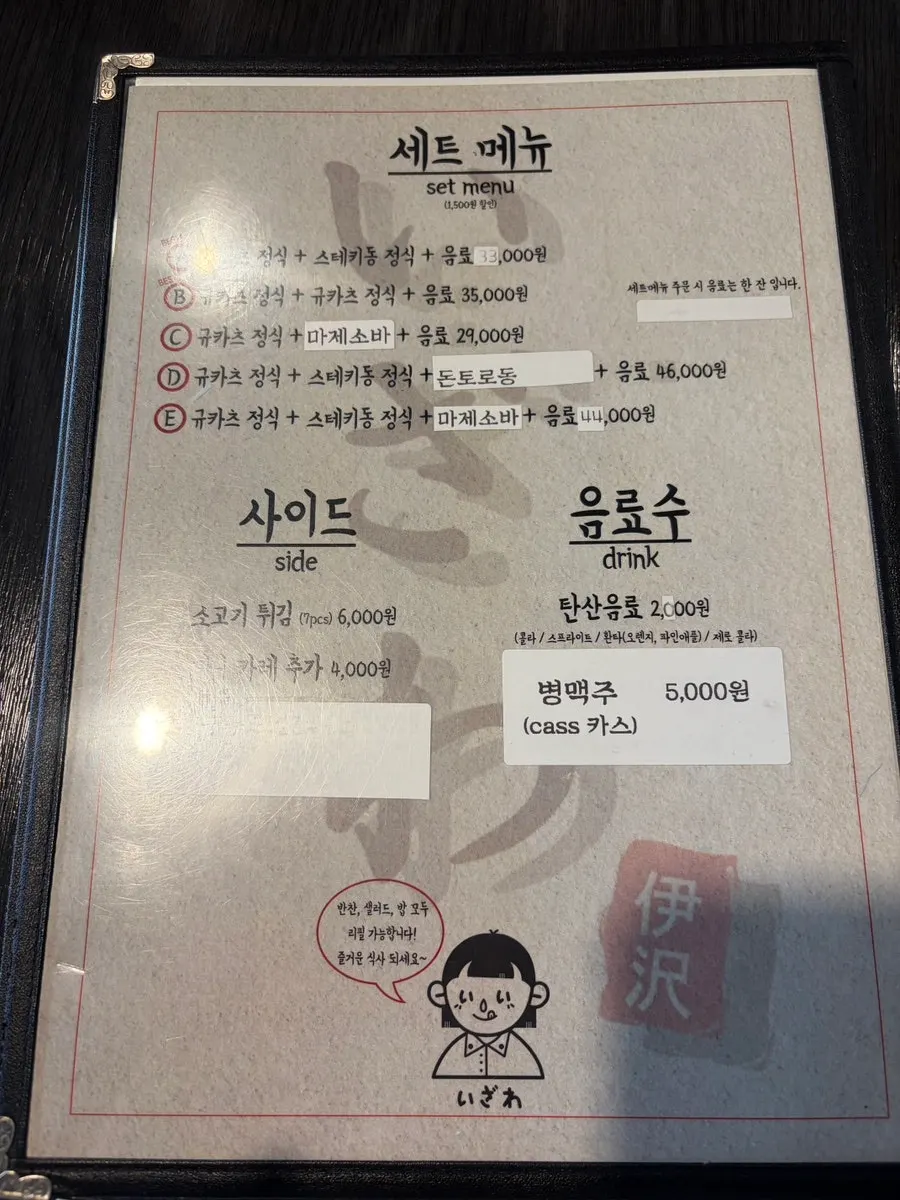 세트 메뉴
set menu
(1,500원 할인)
BEST
정식 + 스테키동 정식 + 음료 33,000원
BEST
B 규카츠 정식 + 규카츠 정식 + 음료 35,000원
세트메뉴 주문 시 음료는 한 잔 입니다.
C 규카츠 정식 + 마제소바 + 음료 29,000원
D 규카츠 정식 + 스테키동 정식 + 돈토로동 + 음료 46,000원
E 규카츠 정식 + 스테키동 정식 + 마제소바 + 음료 44,000원
사이드
side
소고기 튀김 (7pcs) 6,000원
카레 추가 4,000원
음료수
drink
탄산음료 2,000원
(콜라 / 스프라이트 / 환타(오렌지, 파인애플) / 제로 콜라)
병맥주 5,000원
(cass 카스)
반찬, 샐러드, 밥 모두
리필 가능합니다!
즐거운 식사 되세요~
いざわ
いざわ
伊沢